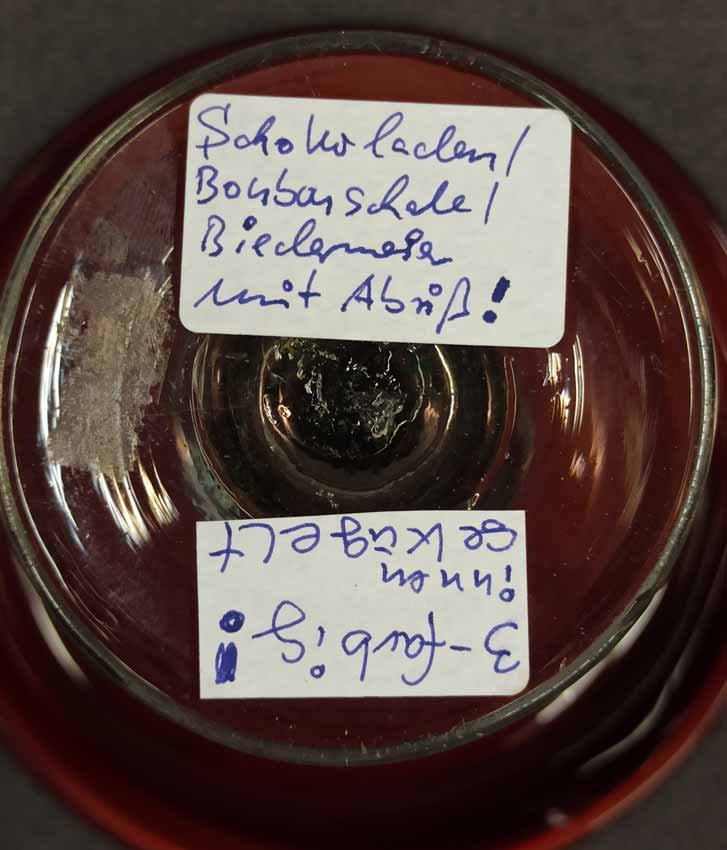 Schokoladen/
Bonbonschale/
Biedermeier
mit Abriß!
3-farbig!
innen
gekügelt